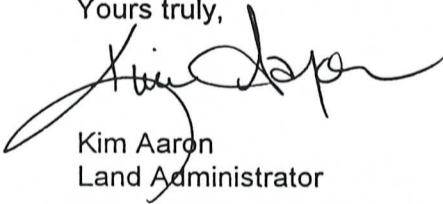 Yours truly,
Kim Aaron
Kim Aaron
Land Administrator